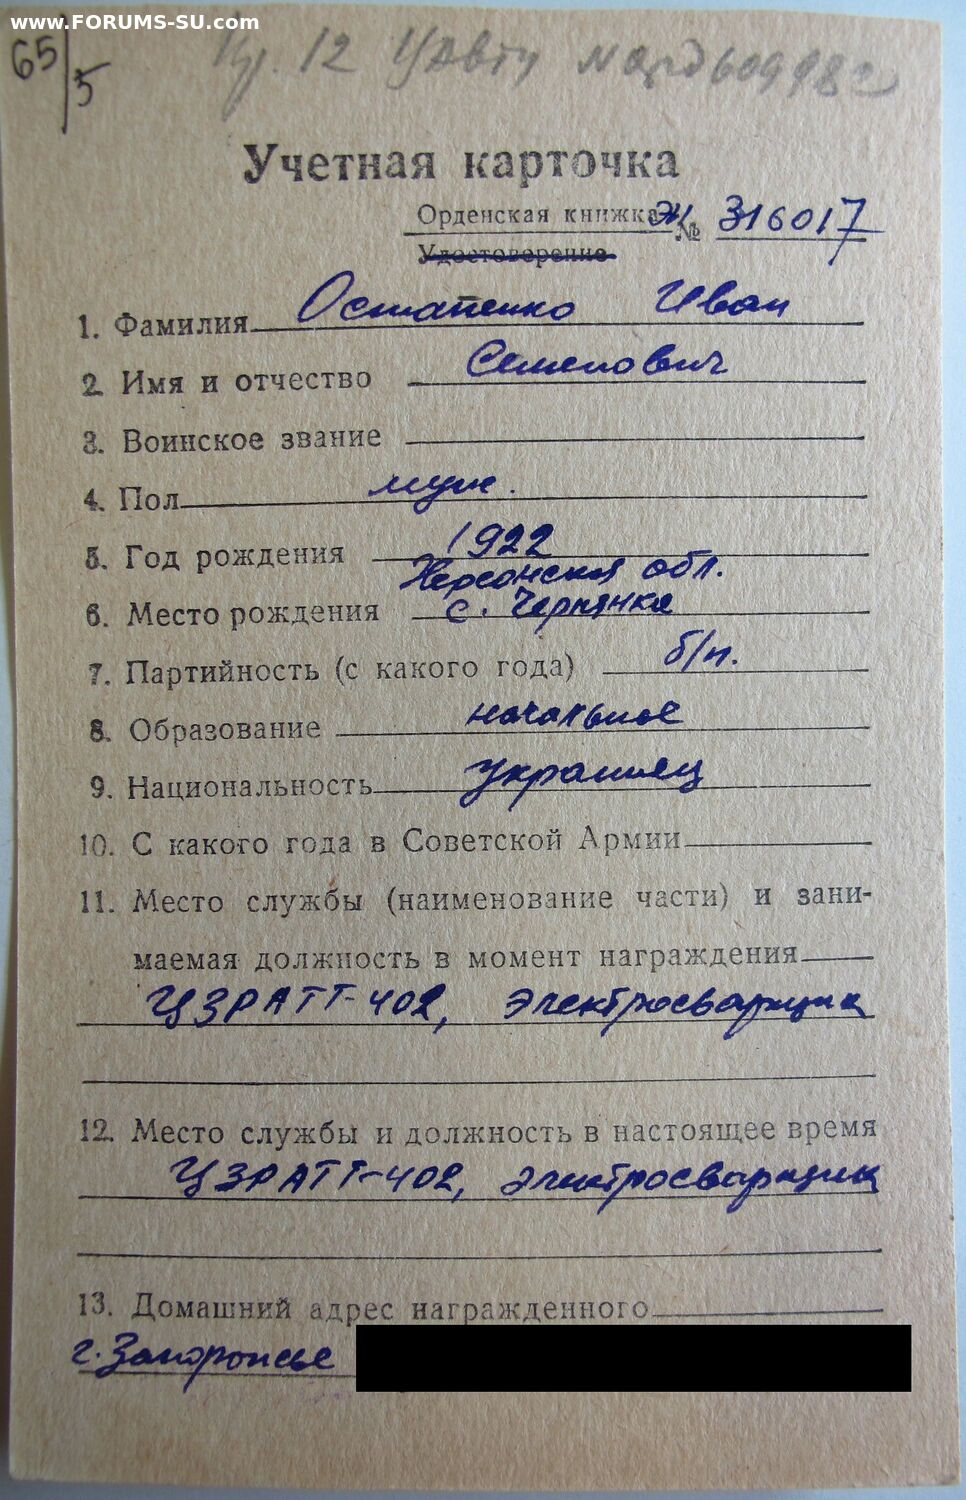 www.FORUMS-SU.com
65/5
12
Учетная карточка
Орденская книжка Ж № 316017
Удостоверение
1. Фамилия Остапенко Иван
2. Имя и отчество Семенович
3. Воинское звание
4. Пол муж.
5. Год рождения 1922
Херсонская обл.
6. Место рождения с. Чернянка
7. Партийность (с какого года) б/п.
8. Образование начальное
9. Национальность украинец
10. С какого года в Советской Армии
11. Место службы (наименование части) и зани-
маемая должность в момент награждения
ЦЗРАТТ-402, электросварщик
12. Место службы и должность в настоящее время
ЦЗРАТТ-402, электросварщик
13. Домашний адрес награжденного
г. Запорожье